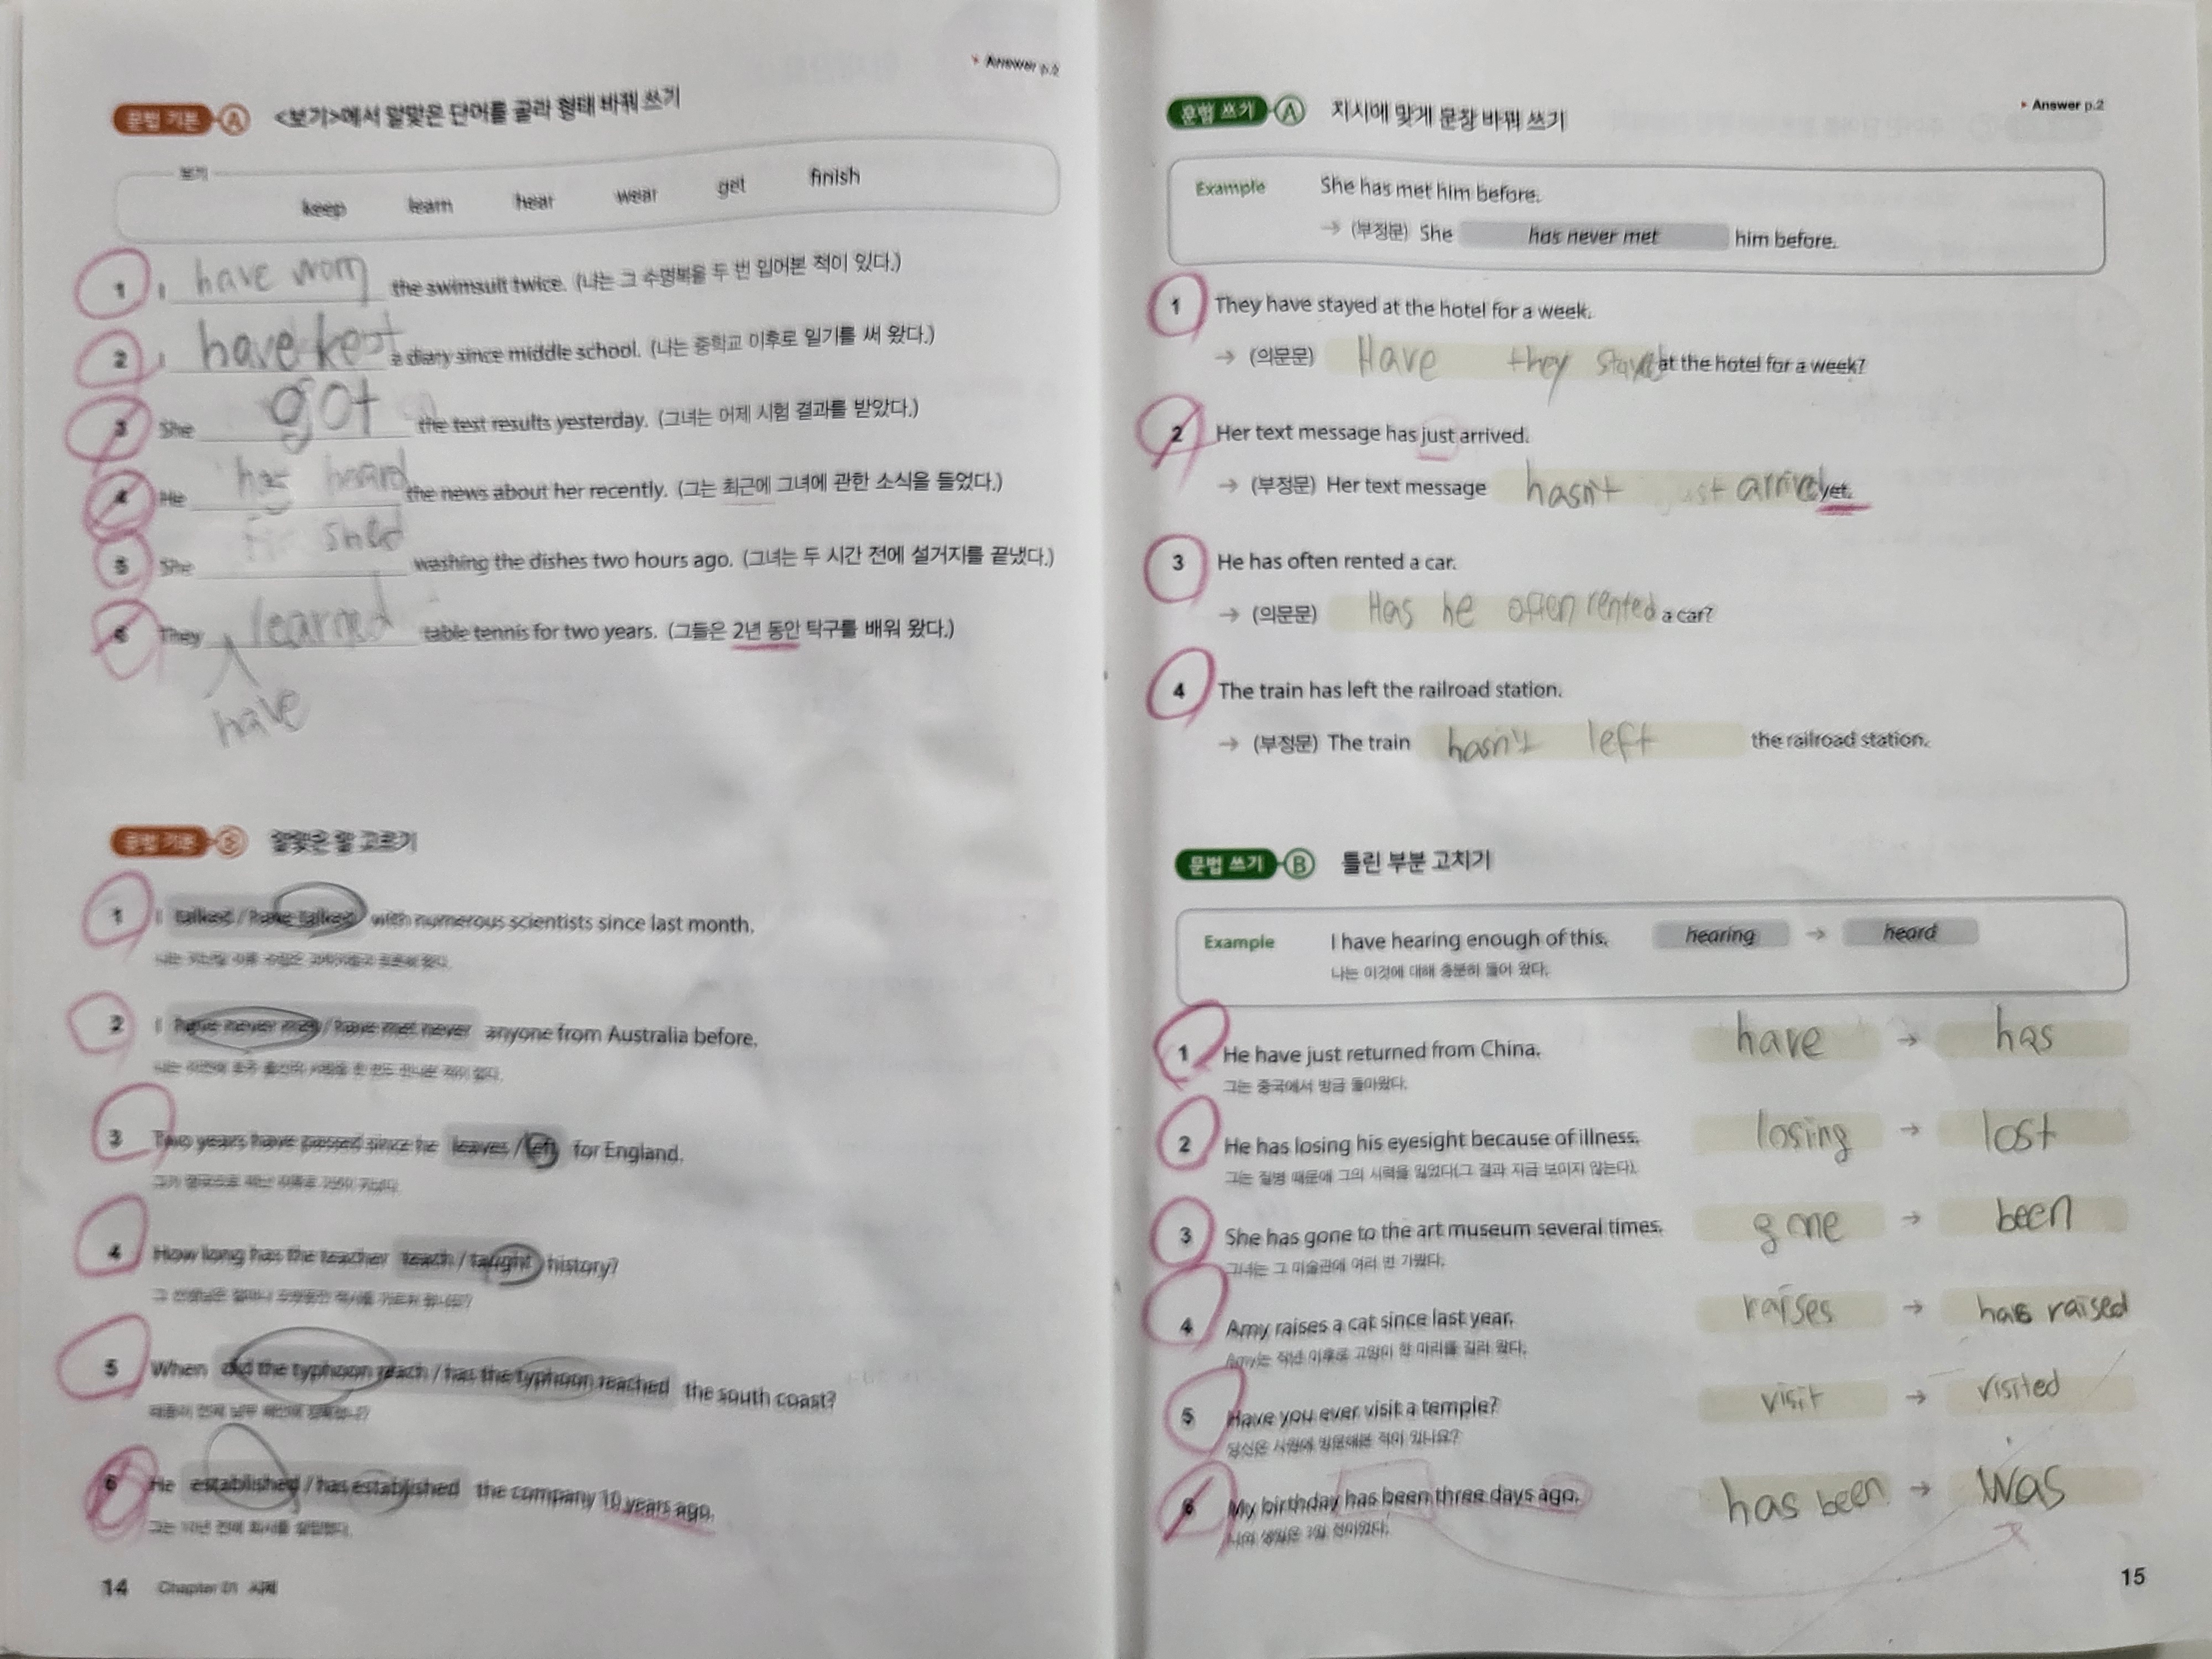 Answer p.2
문법 기본 A <보기>에서 알맞은 단어를 골라 형태 바꿔 쓰기
보기
keep learn hear wear get finish
1 I have worn the swimsuit twice. (나는 그 수영복을 두 번 입어본 적이 있다.)
2 I have kept a diary since middle school. (나는 중학교 이후로 일기를 써 왔다.)
3 She got the test results yesterday. (그녀는 어제 시험 결과를 받았다.)
4 He has heard the news about her recently. (그는 최근에 그녀에 관한 소식을 들었다.)
5 She finished washing the dishes two hours ago. (그녀는 두 시간 전에 설거지를 끝냈다.)
6 They learned table tennis for two years. (그들은 2년 동안 탁구를 배워 왔다.)
have
문법 기본 B 알맞은 말 고르기
1 I talked / have talked with numerous scientists since last month.
2 I have never met / have met never anyone from Australia before.
3 Two years have passed since he leaves / left for England.
4 How long has the teacher teach / taught history?
5 When did the typhoon reach / has the typhoon reached the south coast?
6 He established / has established the company 10 years ago.
그는 10년 전에 회사를 설립했다.
14 Chapter 01 시제
Answer p.2
문법 쓰기 A 지시에 맞게 문장 바꿔 쓰기
Example She has met him before.
→ (부정문) She has never met him before.
1 They have stayed at the hotel for a week.
→ (의문문) Have they stayed at the hotel for a week?
2 Her text message has just arrived.
→ (부정문) Her text message hasn't arrived yet.
3 He has often rented a car.
→ (의문문) Has he often rented a car?
4 The train has left the railroad station.
→ (부정문) The train hasn't left the railroad station.
문법 쓰기 B 틀린 부분 고치기
Example I have hearing enough of this. hearing → heard
나는 이것에 대해 충분히 들어 왔다.
1 He have just returned from China. have → has
그는 중국에서 방금 돌아왔다.
2 He has losing his eyesight because of illness. losing → lost
그는 질병 때문에 그의 시력을 잃었다(그 결과 지금 보이지 않는다).
3 She has gone to the art museum several times. gone → been
그녀는 그 미술관에 여러 번 가봤다.
4 Amy raises a cat since last year. raises → has raised
Amy는 작년 이후로 고양이 한 마리를 길러 왔다.
5 Have you ever visit a temple? visit → visited
당신은 사원에 방문해본 적이 있나요?
6 My birthday has been three days ago. has been → was
나의 생일은 3일 전이었다.
15